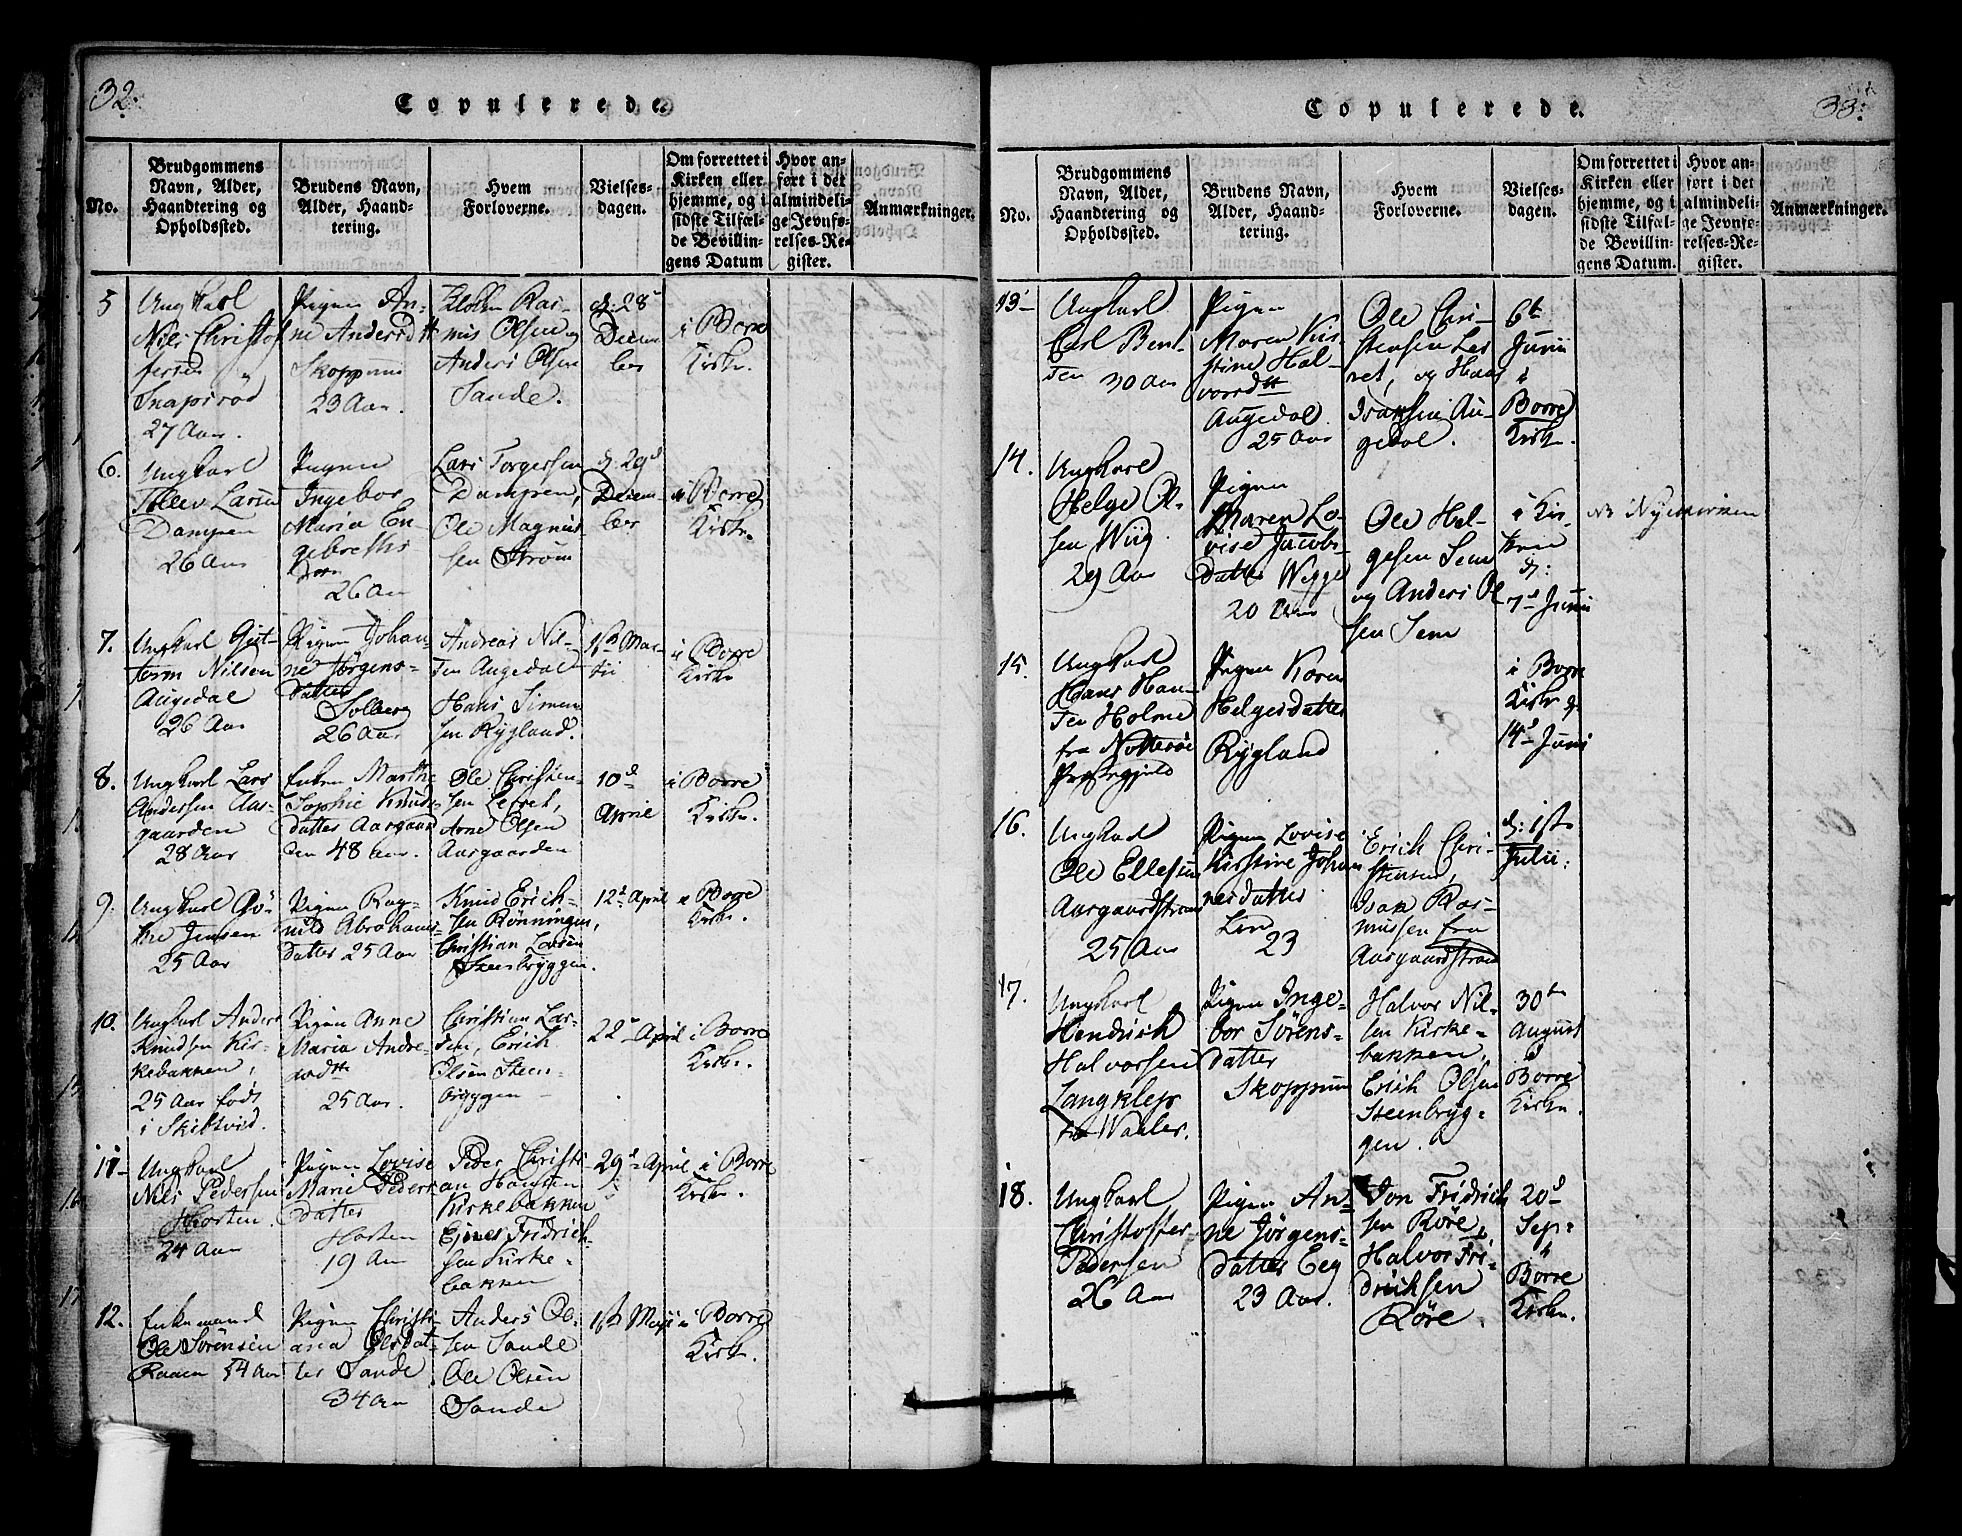 32.
Copulerede.
No.
Brudgommens
Navn, Alder,
Haandtering og
Opholdssted.
Brudens Navn,
Alder, Haand-
tering.
Hvem
Forloverne.
Vielses-
dagen.
Om forrettet i
Kirken eller
hjemme, og i
sidste Tilfæl-
de Bevillin-
gens Datum
Hvor an-
ført i det
almindeli-
ge Jevnfø-
relses-Re-
gister.
Anmærkninger.
5
Ungkarl
Nils Christof
fersen
Snapsrød
27 Aar.
Pigen An-
ne Andersdtt
Skoppum
23 Aar.
Ras-
mus Olsen og
Anders Olsen
Sande.
d: 28d
Decem
ber
i Borre
Kirke.
6.
Ungkarl
Tollev Larsen
Dampen
26 Aar
Pigen
Ingebor
Maria En-
gebreths
26 Aar
Lars Torgersen
Dampen,
Ole Magnus
sen Strøm
d. 29d
Decem-
ber
i Borre
Kirke.
7.
Ungkarl Gut-
torm Nilsen
Augedal
26 Aar
Pigen Johan-
ne Jørgens-
datter
Solberg
26 Aar
Andreas Nil-
sen Augedal
Hans Simen
sen Rygland.
Mar-
tii
i Borre
Kirke
8.
Ungkarl Lars
Andersen Aas-
gaarden
28 Aar
Enken Marthe
Sophie Knuds-
datter Aasgaar
den 48 aar.
Ole Christen-
sen
Arne Olsen
Aasgaarden
10d
April
i Borre
Kirke.
9.
Ungkarl
Jensen
25 Aar
Pigen Rag-
nild Abrahams-
datter 25 Aar
Knud Erich-
sen Rønningen,
Christian Larsen
Steenbryggen.
12d April
i Borre
Kirke.
10.
Ungkarl Anders
Knudsen Kir-
kebakken,
25 Aar født
i Skibtvid.
Pigen Anne
Maria Andre-
asdtt
25 Aar.
Christian Lar-
sen, Erich
Olsen Steen-
bryggen
22de April
i Borre
Kirke.
11
Ungkarl
Nils Pedersen
Horten.
24 Aar
Pigen Lovise
Marie Peders
datter
Horten
19 Aar
Peder Christi-
an Hansen
Kirkebakken
Ejner Fridrich-
sen Kirke-
bakken
29d April
i Borre
Kirke.
12.
Enkemand
Ole Sørensen
Raaen 54 Aar
Pigen Christi-
ana Olsdat-
ter Sande
34 Aar
Anders Ol-
sen Sande
Ole Olsen
Sande
Maji
i Borre
Kirke.
33.
Copulerede.
No.
Brudgommens
Navn, Alder,
Haandtering og
Opholdssted.
Brudens Navn,
Alder, Haand-
tering.
Hvem
Forloverne.
Vielses-
dagen.
Om forrettet i
Kirken eller
hjemme, og i
sidste Tilfæl-
de Bevillin-
gens Datum.
Hvor an-
ført i det
almindeli-
ge Jevnfø-
relses-Re-
gister.
Anmærkninger.
13
Ungkarl
Carl Bent-
sen 30 Aar
Pigen
Maren Kir-
stine Hal-
vorsdtt
Augedal
25 Aar
Ole Chri-
stensen Les
ret, og Hans
Isaksen Au-
gedal.
6te
Junii
i
Borre
Kirke.
14.
Ungkarl
Helge Ol-
sen Wiig
29 Aar
Pigen
Maren Lo-
vise Jacobs-
datter Wegge
20 Aar
Ole Hel-
gesen Sem
og Anders Ol
sen Sem
i Kir-
ken
d:
7d Junii
15.
Ungkarl
Hans Han-
sen Holme
fra Nøtterøe
Præstegjeld
Pigen Karen
Helgesdatter
Rygland
i Borre
Kirke d.
14d Juni
16.
Ungkarl
Ole Ellefsen
Aasgaardstrand
25 Aar
Pigen Lovise
Kirstine Johan
nesdatter
Lin
23
Erich Chri-
stensen,
Isak Ras-
mussen fra
Aasgaardstrand
d: 1ste
Julii:
17.
Ungkarl
Hendrich
Halvorsen
Langklep
Waaler.
Pigen Inge-
bor Sørens-
datter
Skoppum
Halvor Nil-
sen Kirke-
bakken,
Erich Olsen
Steenbryg-
gen.
30te
August
i
Borre
Kirke.
18.
Ungkarl
Christoffer
Pedersen
26 Aar
Pigen An-
ne Jørgens-
datter Eeg
23 Aar.
Jon Fridrich
sen Røre,
Halvor Fri-
drichsen
Røre.
20d
Sep:
i
Borre
Kirke.